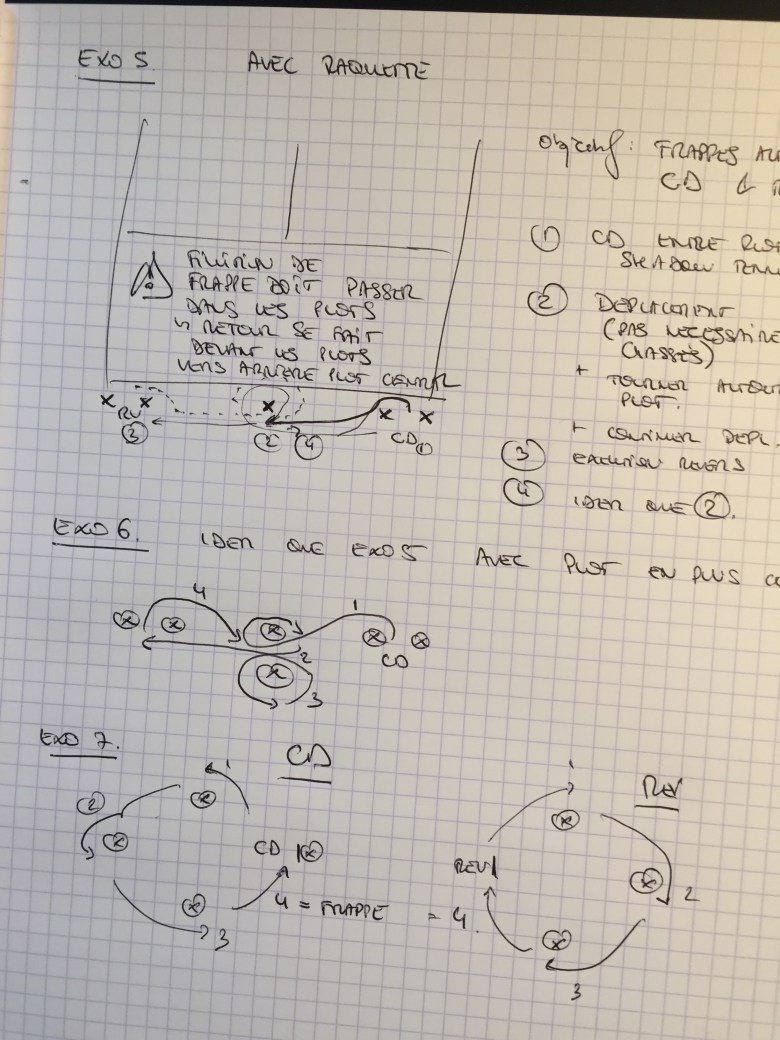 EXO 5. AVEC RAQUETTE
Objectif : FRAPPES
CD &
① CD ENTRE
SHADOW
② DEPLACEMENT
(PAS NECESSAIRE
CHASSÉS)
+ TOURNER AUTOU
PLOT.
+ CONTINUER DEPL.
③ EXECUTION REVERS
④ IDEM QUE ②.
FINITION DE
FRAPPE DOIT PASSER
DANS LES PLOTS
↳ RETOUR SE FAIT
DEVANT LES PLOTS
VERS ARRIERE PLOT CENTRAL
x x x x x
RV
③ ② ④ CD①
EXO 6. IDEM QUE EXO 5 AVEC PLOT EN PLUS
4 1
x x x x x
2 CD
x
3
EXO 7. CD REV
1 1
x x
② x
CD x REV x 2
x 3 4 = FRAPPE = 4. x
3